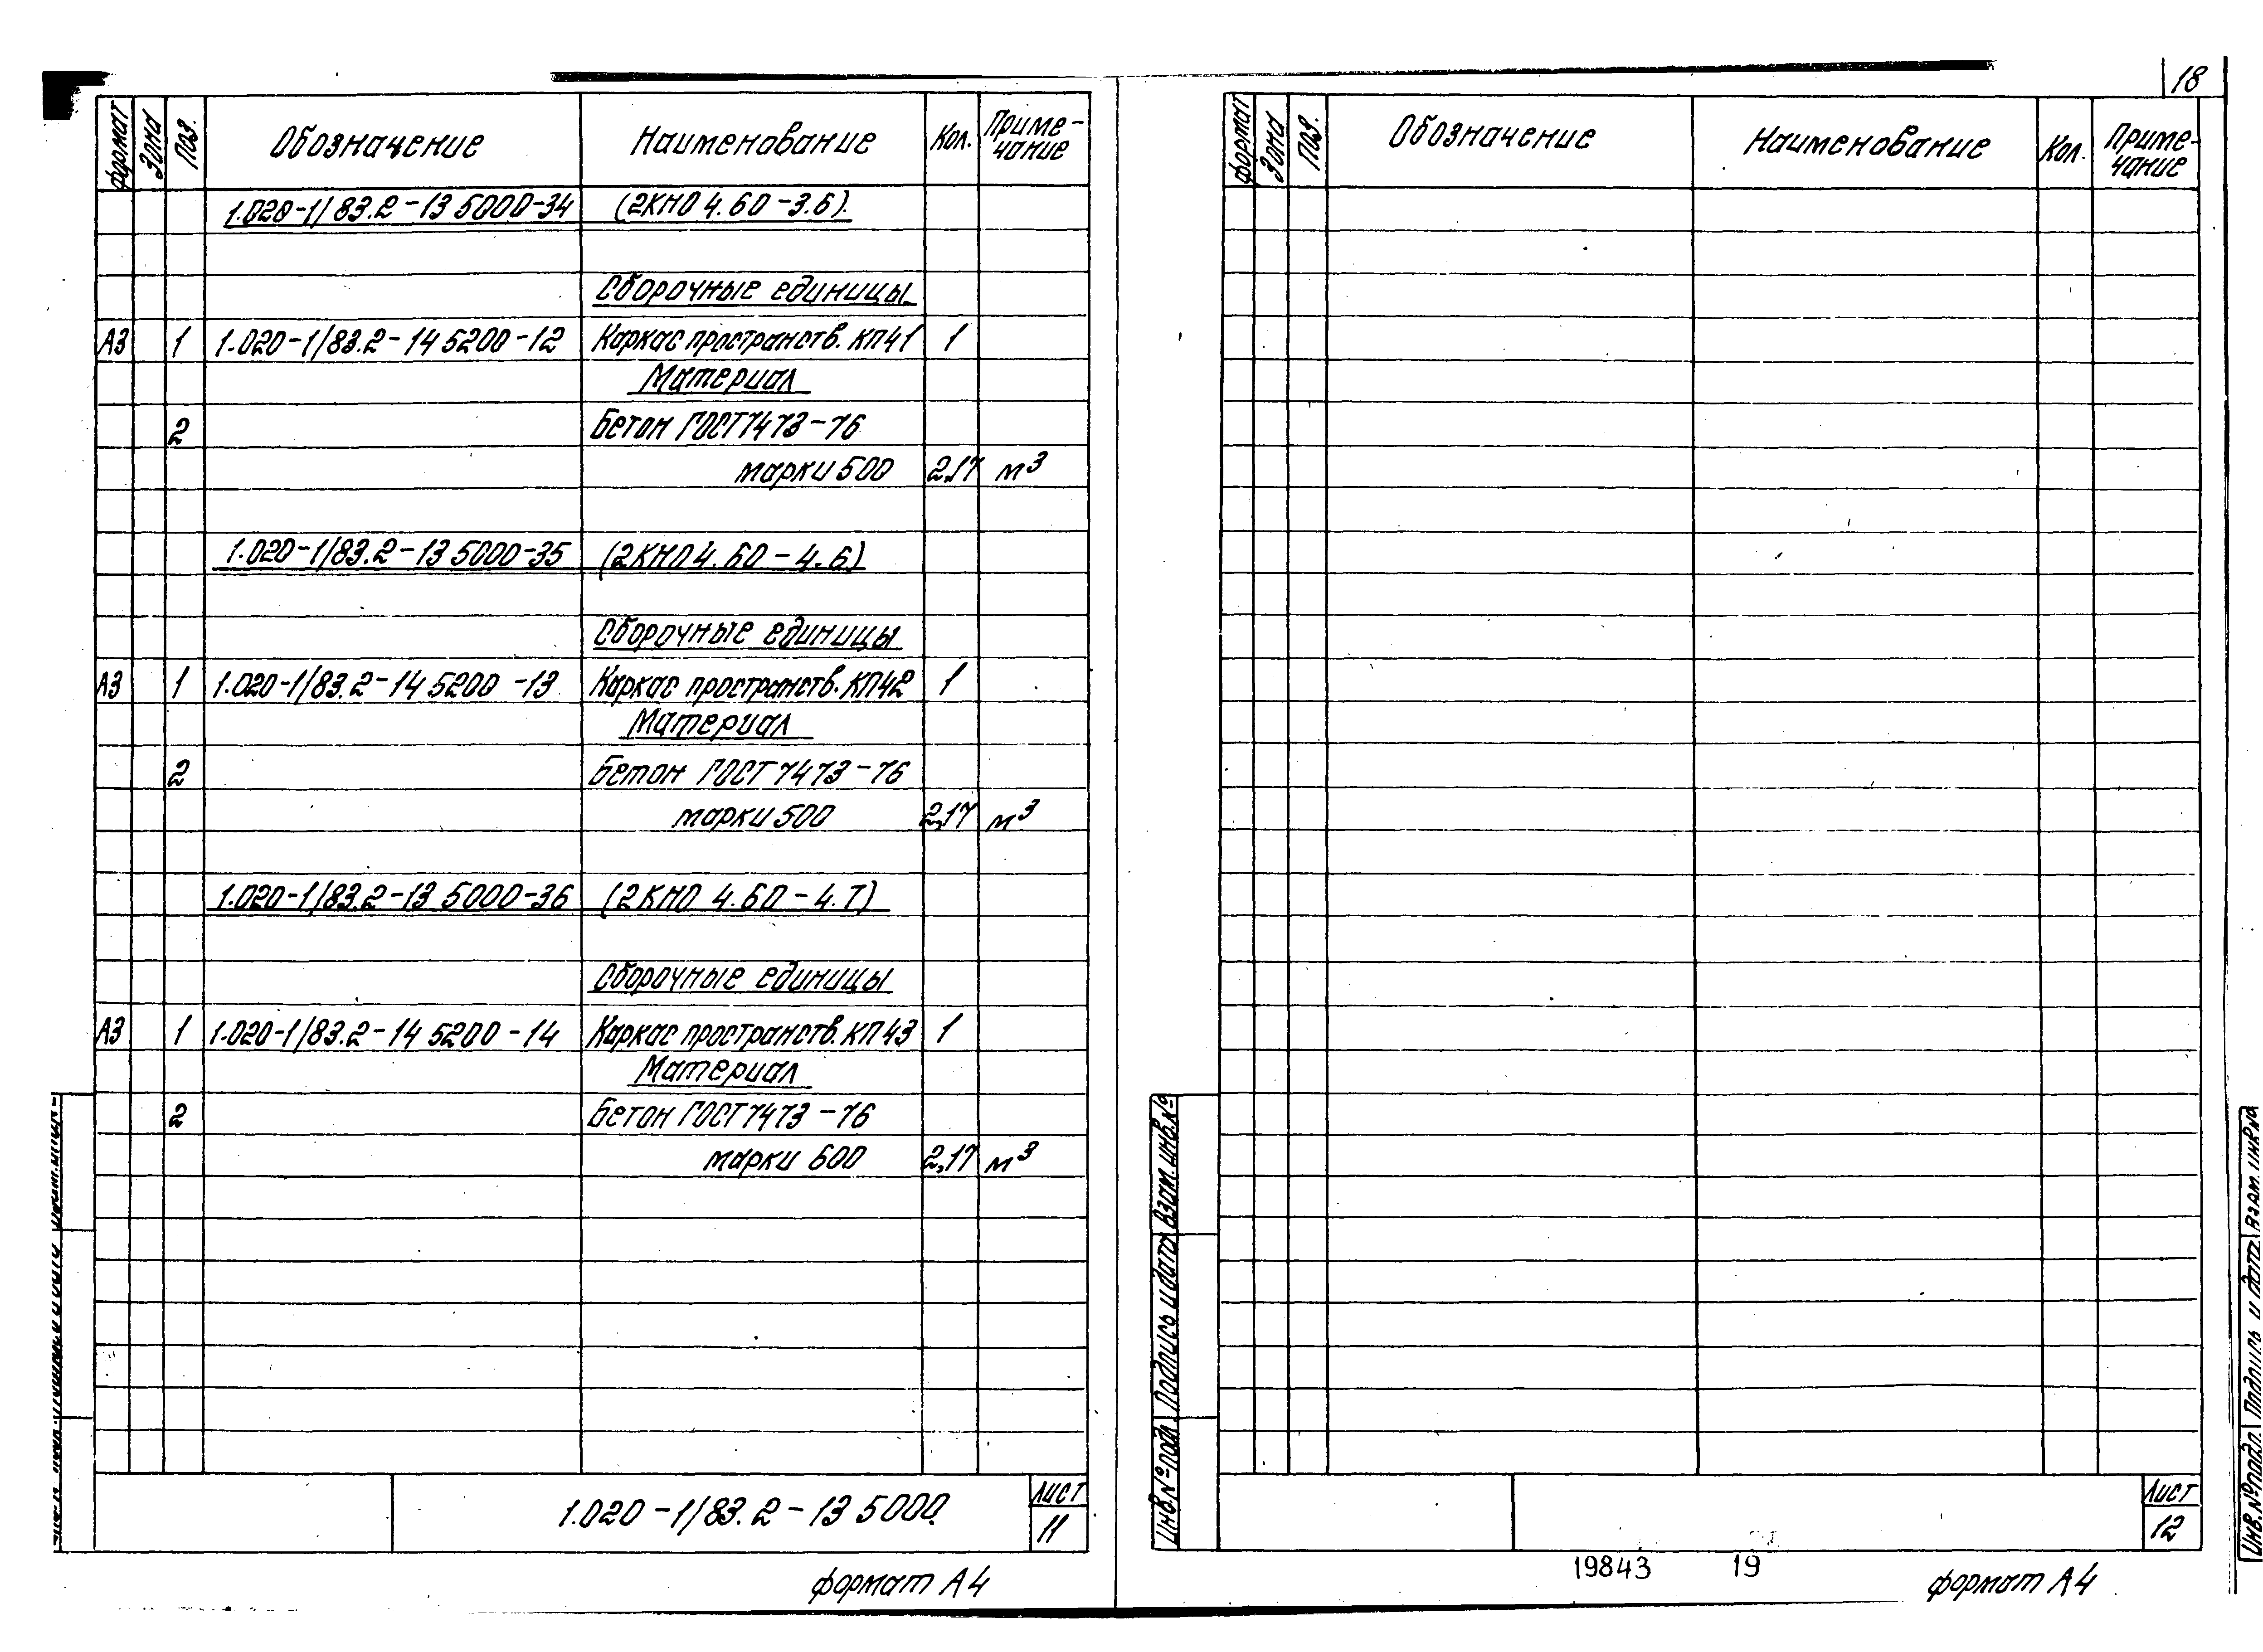 18
формат Зона Поз. Обозначение Наименование Кол. Приме-
чание
1.020-1/83.2-13 5000-34 (2КНО 4.60-3.6).
Сборочные единицы
А3 1 1.020-1/83.2-14 5200-12 Каркас пространств. КП41 1
Материал
2 Бетон ГОСТ 7473-76
марки 500 2,17 м³
1.020-1/83.2-13 5000-35 (2КНО 4.60-4.6)
Сборочные единицы
А3 1 1.020-1/83.2-14 5200-13 Каркас пространств. КП42 1
Материал
2 Бетон ГОСТ 7473-76
марки 500 2,17 м³
1.020-1/83.2-13 5000-36 (2КНО 4.60-4.7)
Сборочные единицы
А3 1 1.020-1/83.2-14 5200-14 Каркас пространств. КП43 1
Материал
2 Бетон ГОСТ 7473-76
марки 600 2,17 м³
1.020-1/83.2-13 5000
Лист
11
формат А4
формат Зона Поз. Обозначение Наименование Кол. Приме-
чание
Инв.№ подл. Подпись и дата Взам. инв.№
Лист
12
19843 19
формат А4
Инв.№ подл. Подпись и дата Взам. инв.№